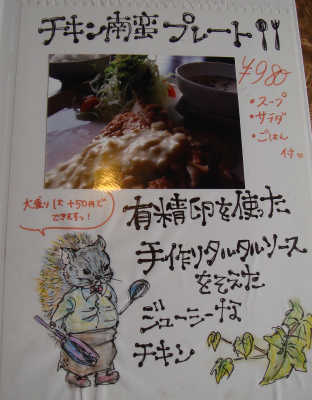 チキン南蛮プレート
¥980
・スープ
・サラダ
・ごはん
付
大盛りは+50円で
できますっ!
有精卵を使った
手作りタルタルソース
をそえた
ジューシーな
チキン